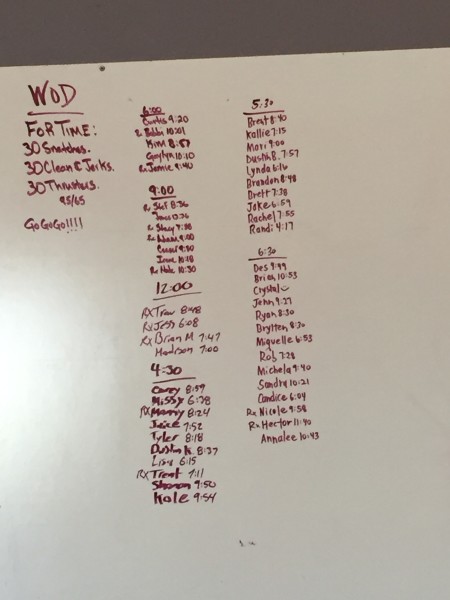 WOD
FOR TIME:
30 Snatches.
30 Clean & Jerks.
30 Thrusters.
95/65
GO GO GO!!!!
6:00
Curtis 9:20
Rx Bobbi 10:01
Kim 8:57
Gaylyn 10:10
Rx Jamie 9:40
9:00
Rx Stef 8:36
Rx Stacy 7:58
10:18
Rx Nate 10:30
12:00
RX Trav 8:48
Rx Jess 6:08
Rx Brian M 7:47
Madison 7:00
4:30
Corey 8:59
Missy 6:38
RX Manny 8:24
Juice 7:52
Tyler 8:18
Dustin K. 8:37
Lisa 6:15
RX Trent 7:11
Sharon 9:50
Kole 9:54
5:30
Brent 8:40
Kallie 7:15
Mari 9:00
Dustin B. 7:57
Lynda 6:16
Brandon 8:48
Brett 7:38
Jake 6:59
Rachel 7:55
Randi 4:17
6:30
Des 9:49
Brian 10:53
Crystal
Jenn 9:27
Ryan 8:30
Brytten 8:30
Miquelle 6:53
Rob 7:28
Michela 9:40
Sandra 10:21
Candice 6:04
Rx Nicole 9:58
Rx Hector 11:40
Annalee 10:43